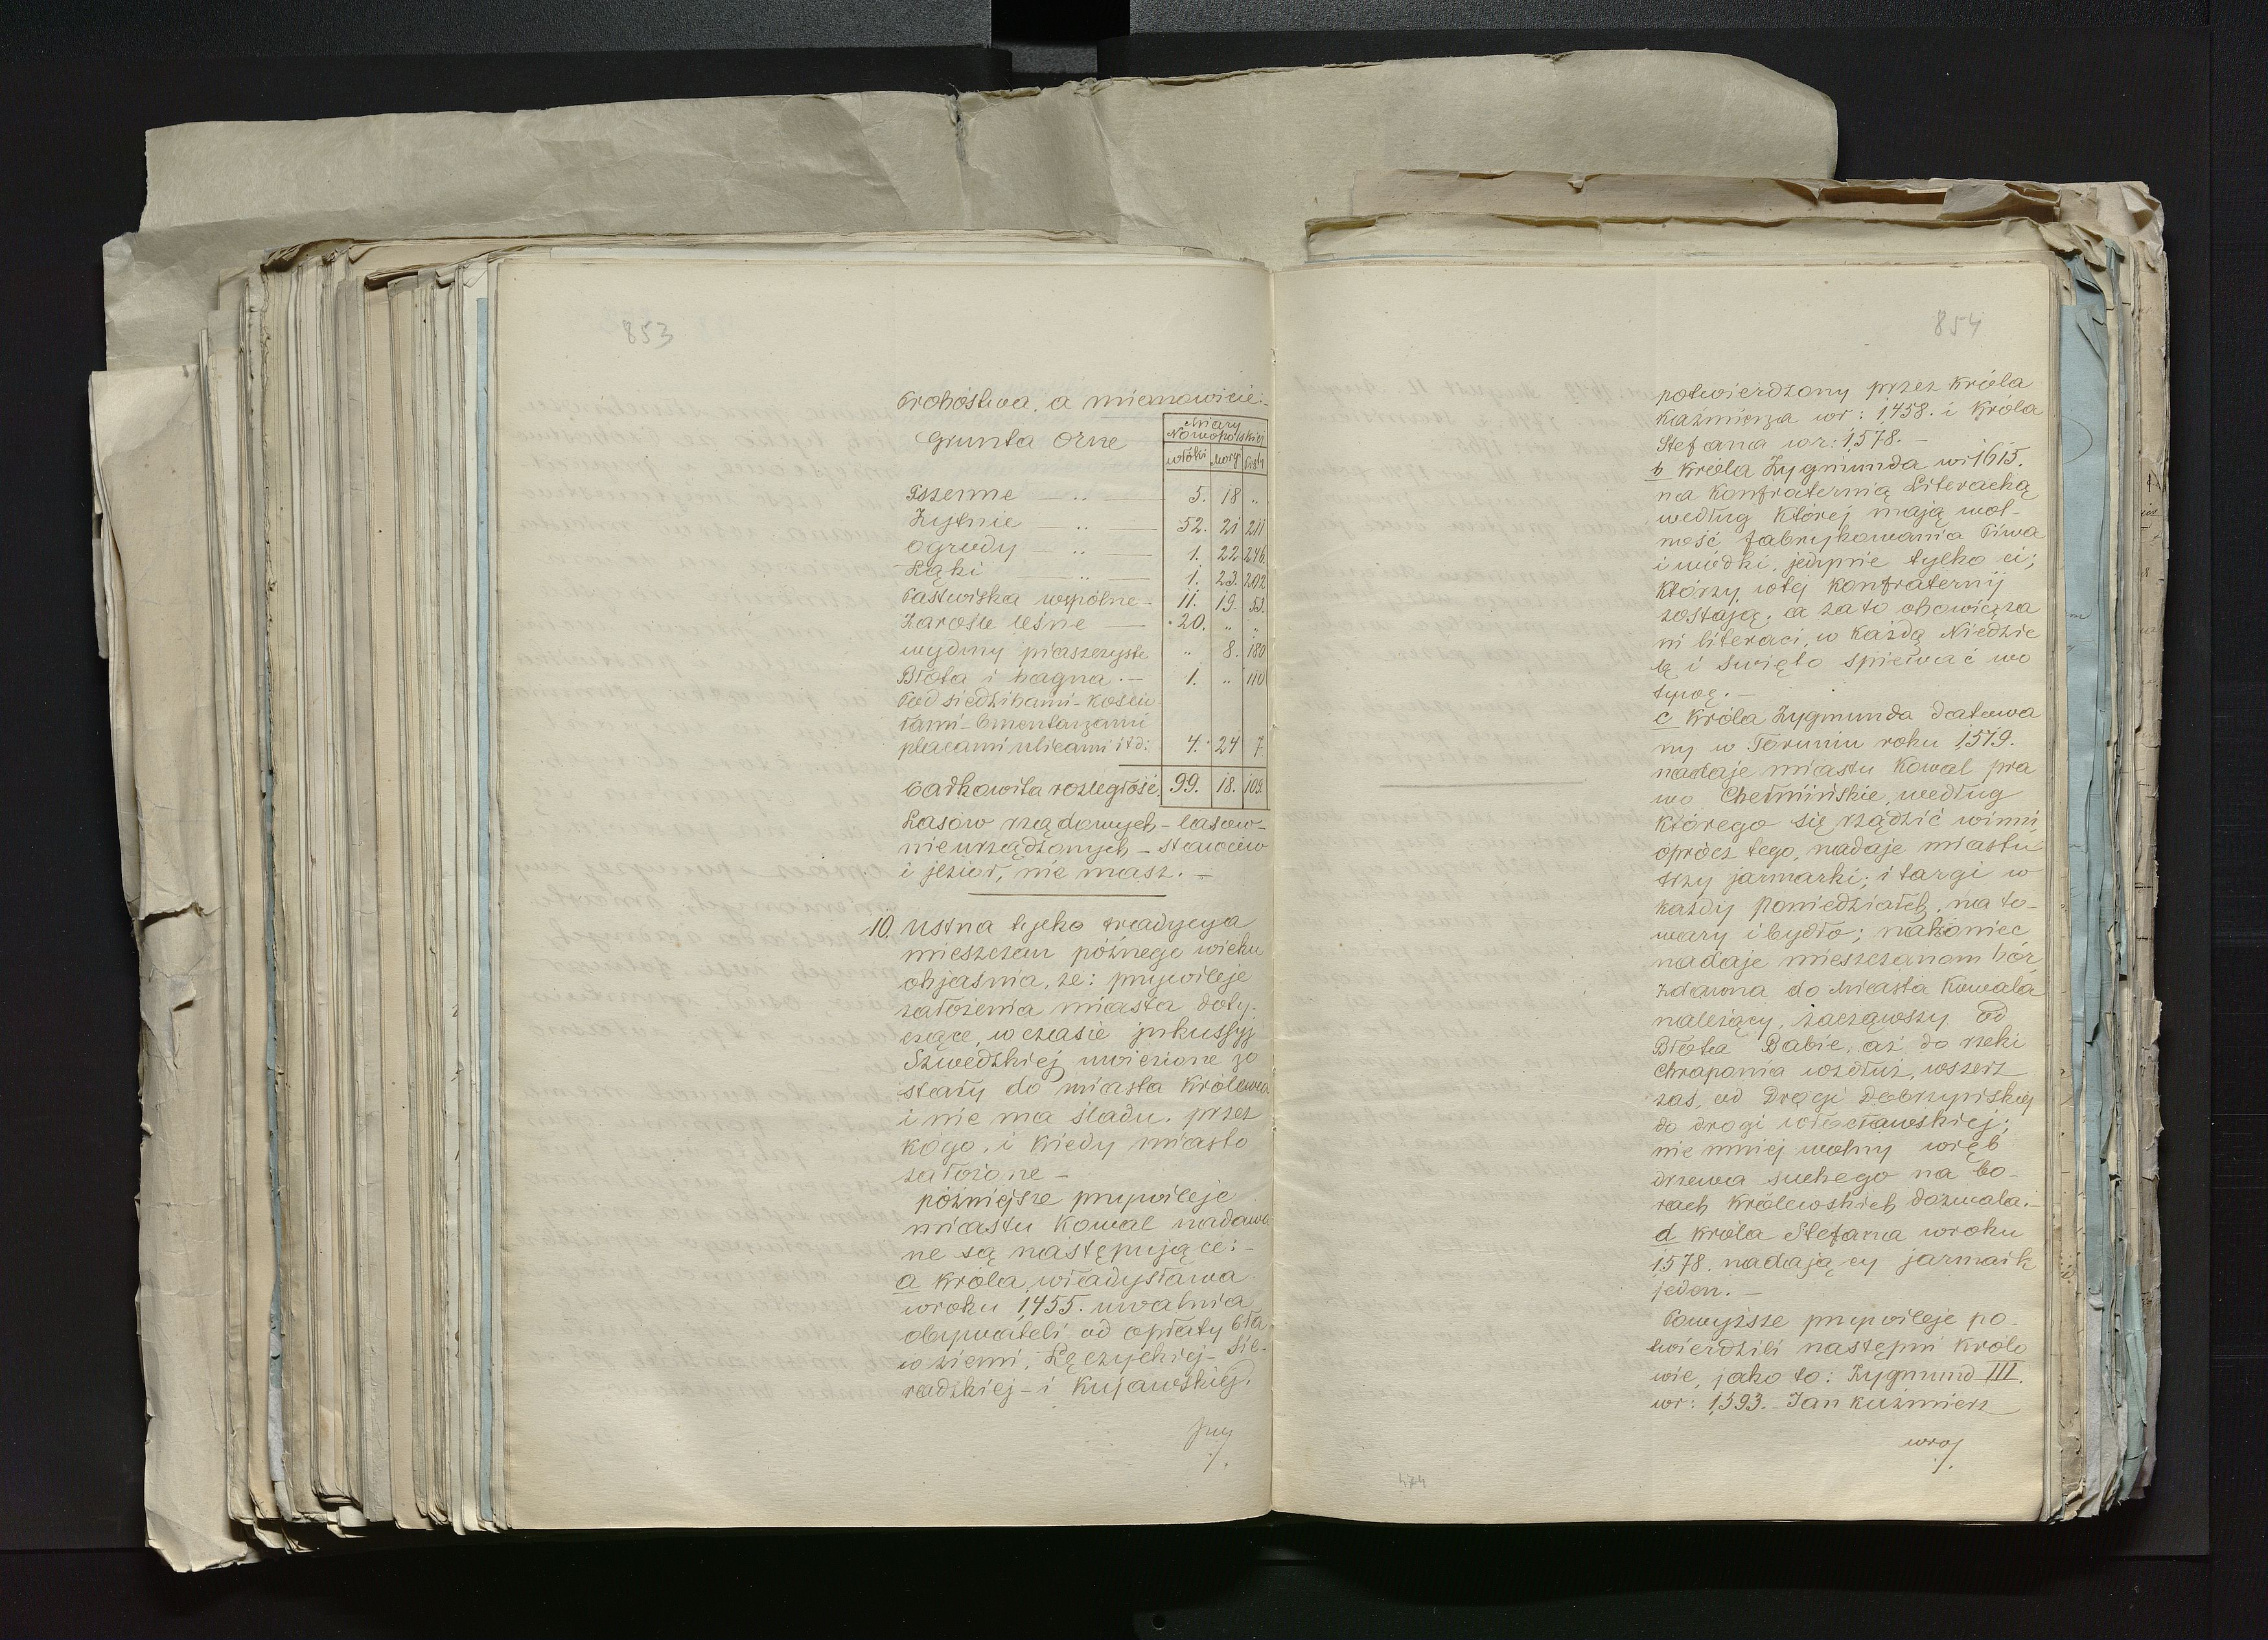 853
Probostwa, a mianowicie:
Grunta Orne
Miary
Nowopolskiej
włóki morg Pręty
Pszenne — „ — 5. 18 „
Żytnie — „ — 52. 21 211
Ogrody — „ — 1. 22 246
Łąki — „ — 1. 23. 202
Pastwiska wspólne - 11. 19. 53.
Zarośle leśne — 20. „ „
wydmy piaszczyste „ 8. 180
Błota i bagna. — 1. „ 110
Pod siedzibami - kościo
łami - Cmentarzami
placami ulicami itd: 4. 24 7
Całkowita rozległość. 99. 18. 109.
Lasów rządowych - lasow -
nieurządzonych - stawów
i jeziór, nie masz. —
10. Ustna tylko tradycyja
mieszczan późnego wieku
objaśnia, że: przywileje
założenia miasta doty-
czące, w czasie inkussyj
Szwedzkiej uwiezione zo
stały do miasta Królewca
i nie ma śladu, przez
kogo, i kiedy miasto
założone —
późniejsze przywileje
miastu Kowal nadawa
ne są następujące: -
a króla Władysława
w roku 1455. uwalnia
obywateli od opłaty Cła
w ziemi, Łęczyckiej - Sie-
radzkiej - i Kujawskiej.
przy
./.
854
potwierdzony przez króla
Kaźmierza w r: 1458. i Króla
Stefana w r: 1578. —
b króla Zygmunda w 1615.
na Konfraternią Literacką
według której mają wol-
ność fabrykowania Piwa
i wódki, jedynie tylko ci;
którzy w tej Konfraternij
zostają; a za to obowiąza
ni literaci, w każdą Niedzie
lę i święto śpiewać wo
tywę. —
c Króla Zygmunda datowa
ny w Toruniu roku 1519.
nadaje miastu Kowal pra
wo Chełmińskie, według
którego się rządzić winni,
oprócz tego, nadaje miastu
trzy jarmarki; i targi w
każdy poniedziałek, na to-
wary i bydło; nakoniec
nadaje mieszczanom bór
zdawna do Miasta Kowala
należący, zacząwszy od
Błota Babie, aż do rzeki
Chraponia wzdłuż, wszerz
zas, od Drogi Dobrzyńskiej
do drogi Włocławskiej;
nie mniej wolny wrąb
drzewa suchego na bo-
rach Królewskich dozwala. -
d króla Stefana w roku
1578. nadający jarmark
jeden. —
Powyższe przywileje po-
twierdzili następni Królo
wie, jako to: Zygmund III.
w r: 1593. Jan Kaźmierz
w ro
./.
474